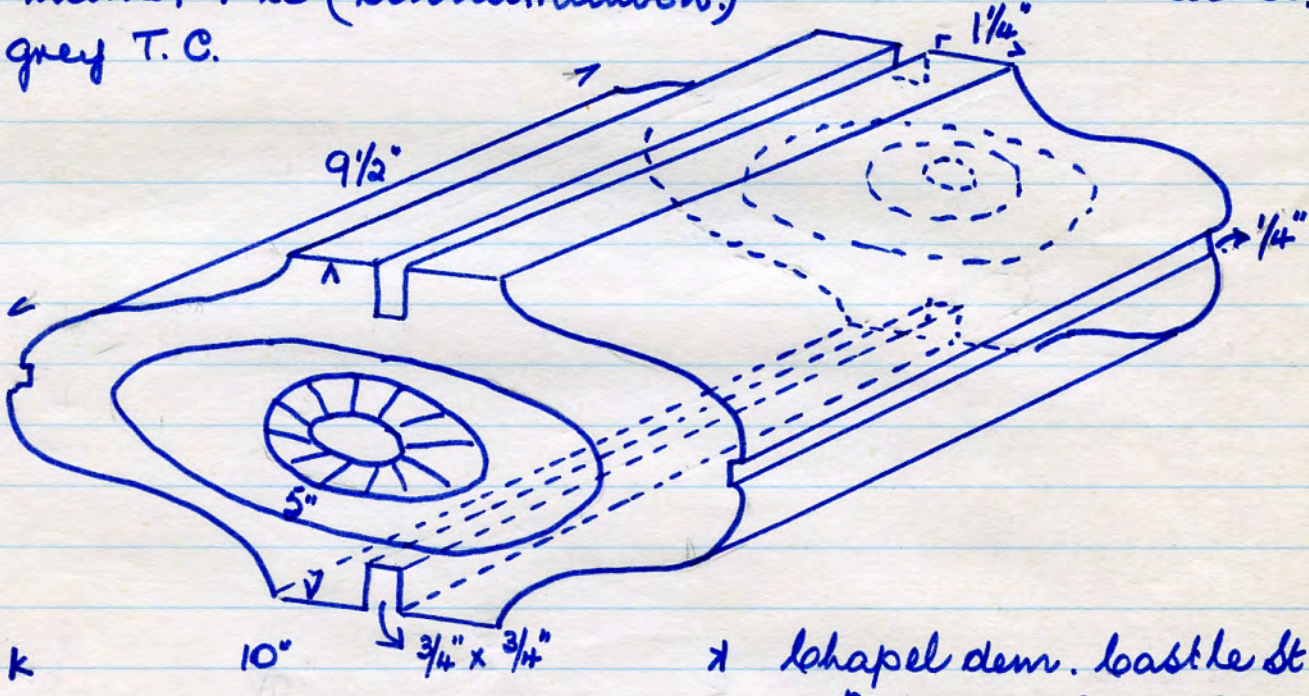 grey T. C.
1 1/4"
9 1/2"
1/4"
5"
10"
3/4" x 3/4"
Chapel dem. Castle St